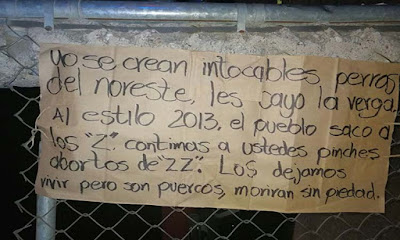 No se crean intocables, perros
del noreste, les cayo la verga.
Al estilo 2013. el pueblo saco a
los "Z". contimas a ustedes pinches
abortos de "ZZ". Los dejamos
vivir pero son puercos, moriran sin piedad.